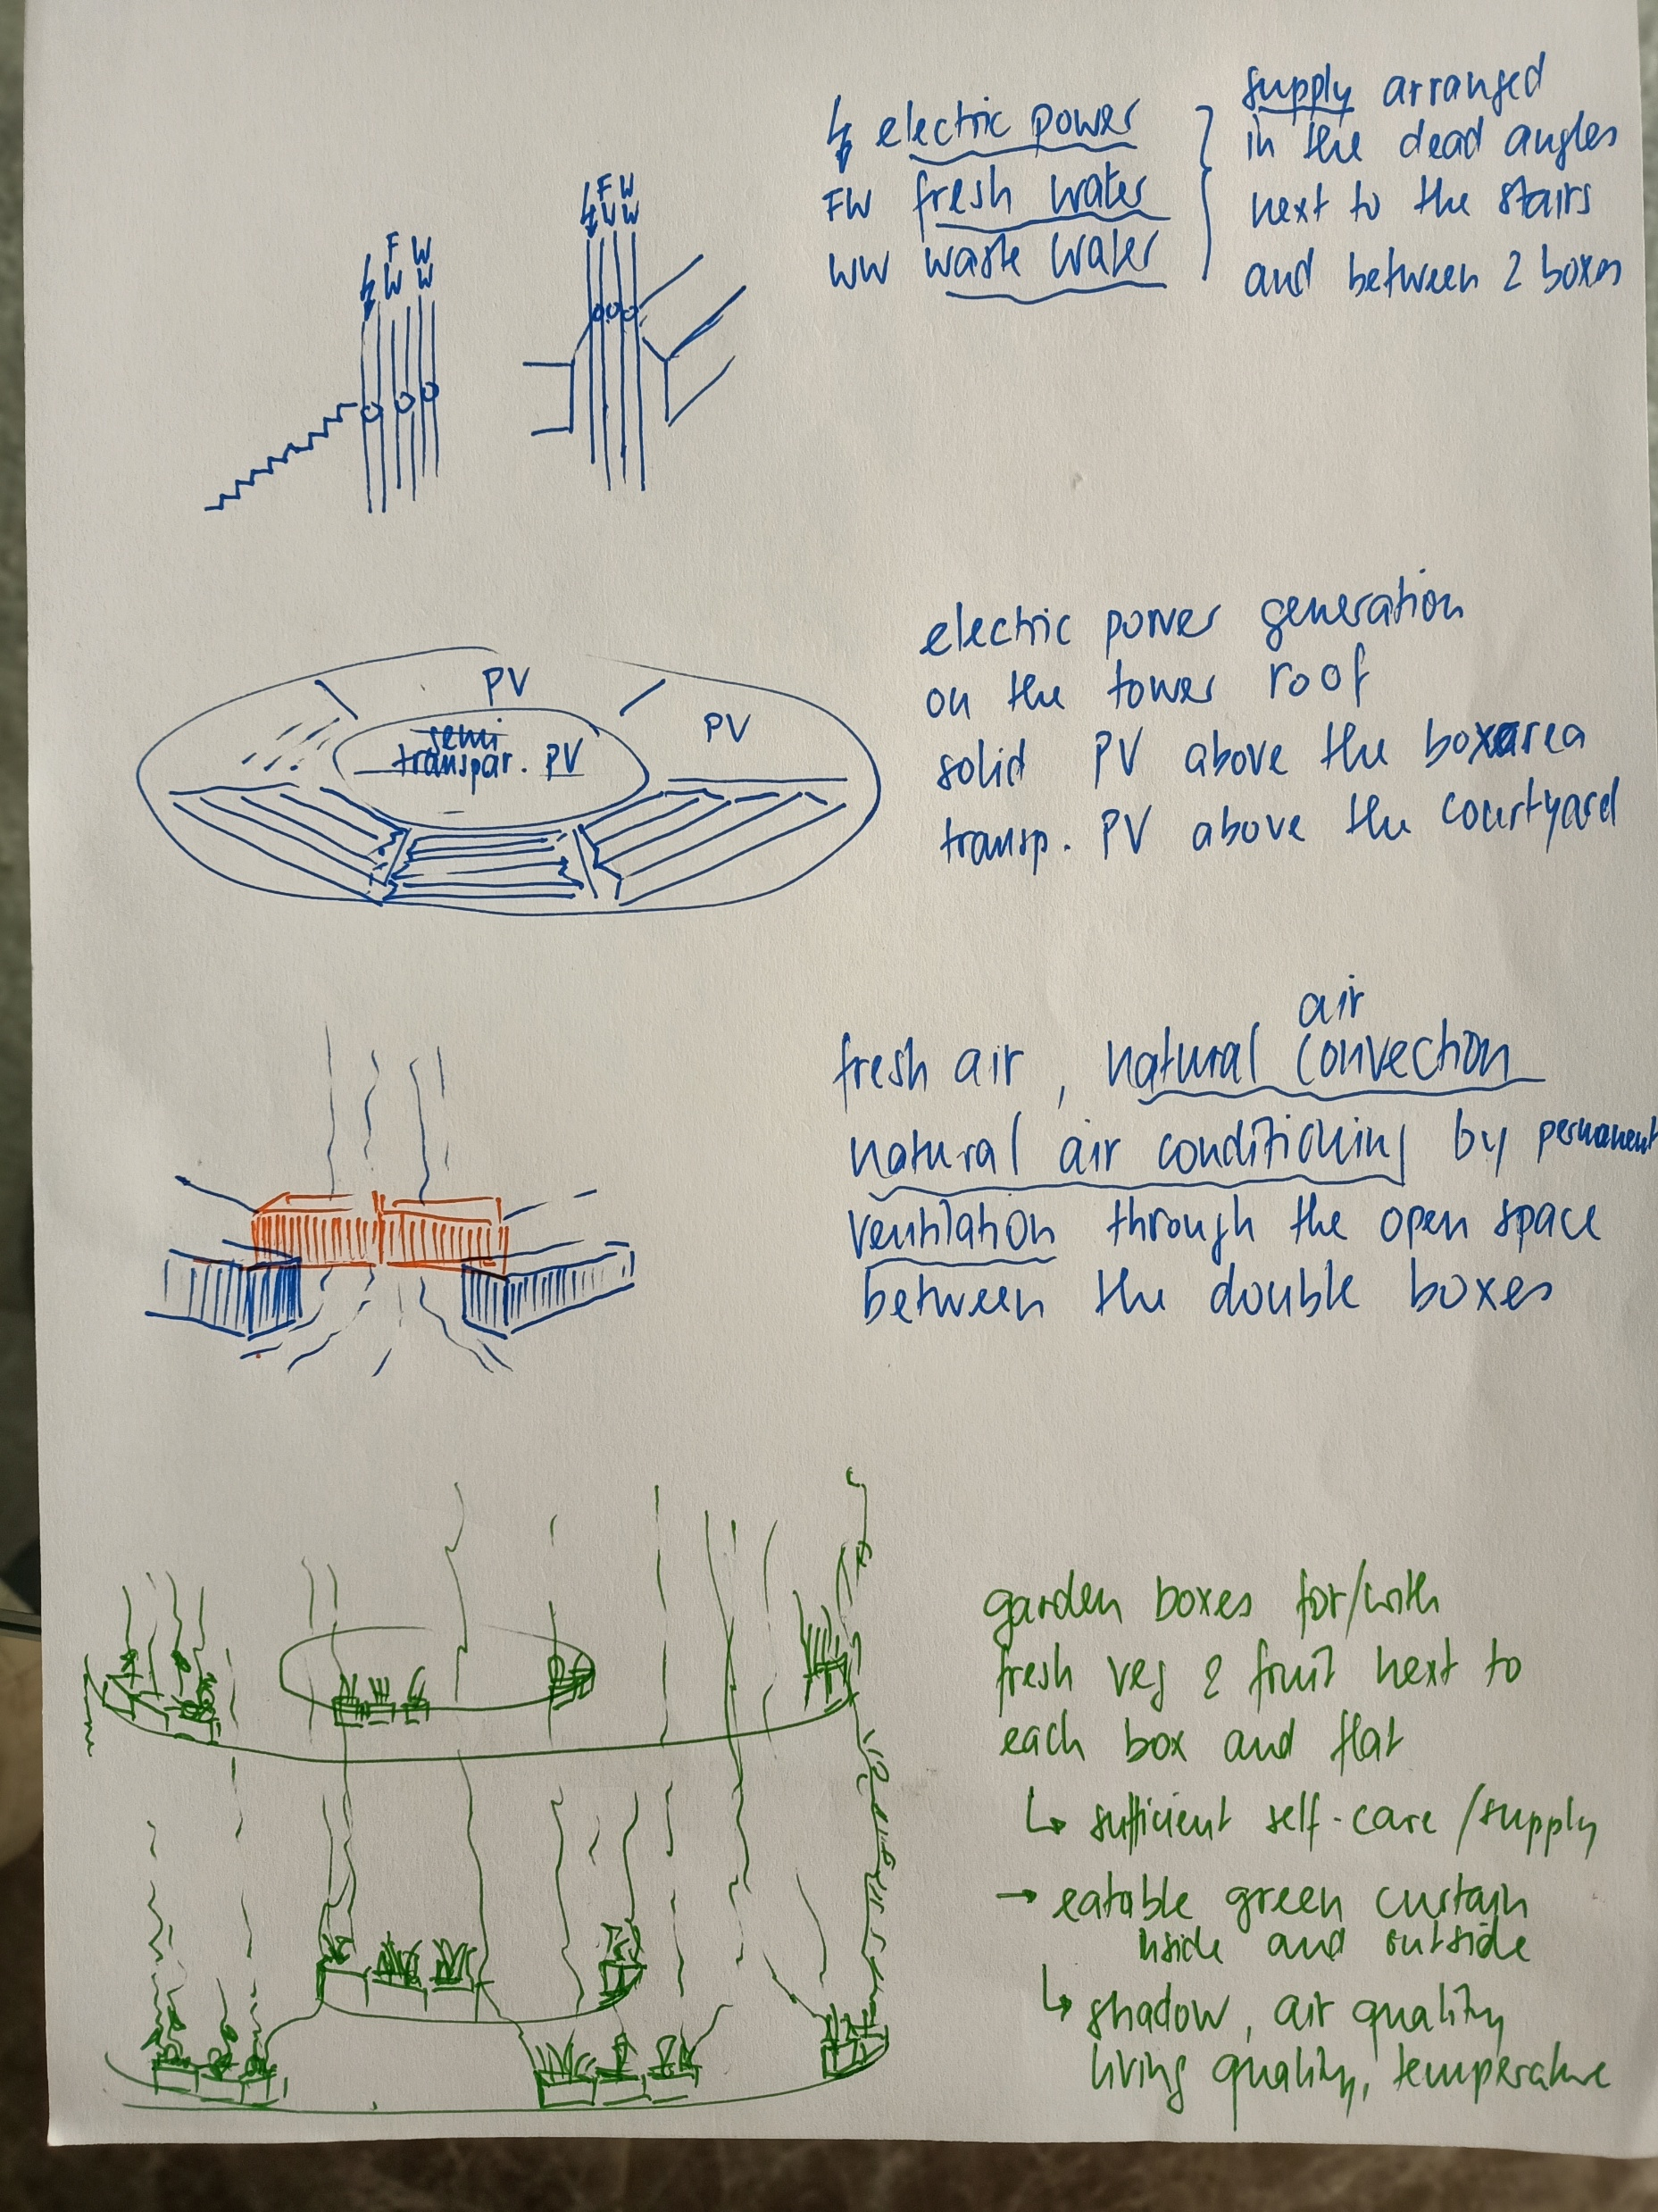 ↯ electric power
FW fresh water
WW waste water
supply arranged
in the dead angles
next to the stairs
and between 2 boxes
↯ FW WW
↯ FW WW
PV
PV
semi
transpar. PV
electric power generation
on the tower roof
solid PV above the boxarea
transp. PV above the courtyard
air
fresh air, natural convection
natural air conditioning by permanent
ventilation through the open space
between the double boxes
garden boxes for/with
fresh veg & fruit next to
each box and flat
↳ sufficient self-care/supply
→ eatable green curtain
inside and outside
↳ shadow, air quality
living quality, temperature